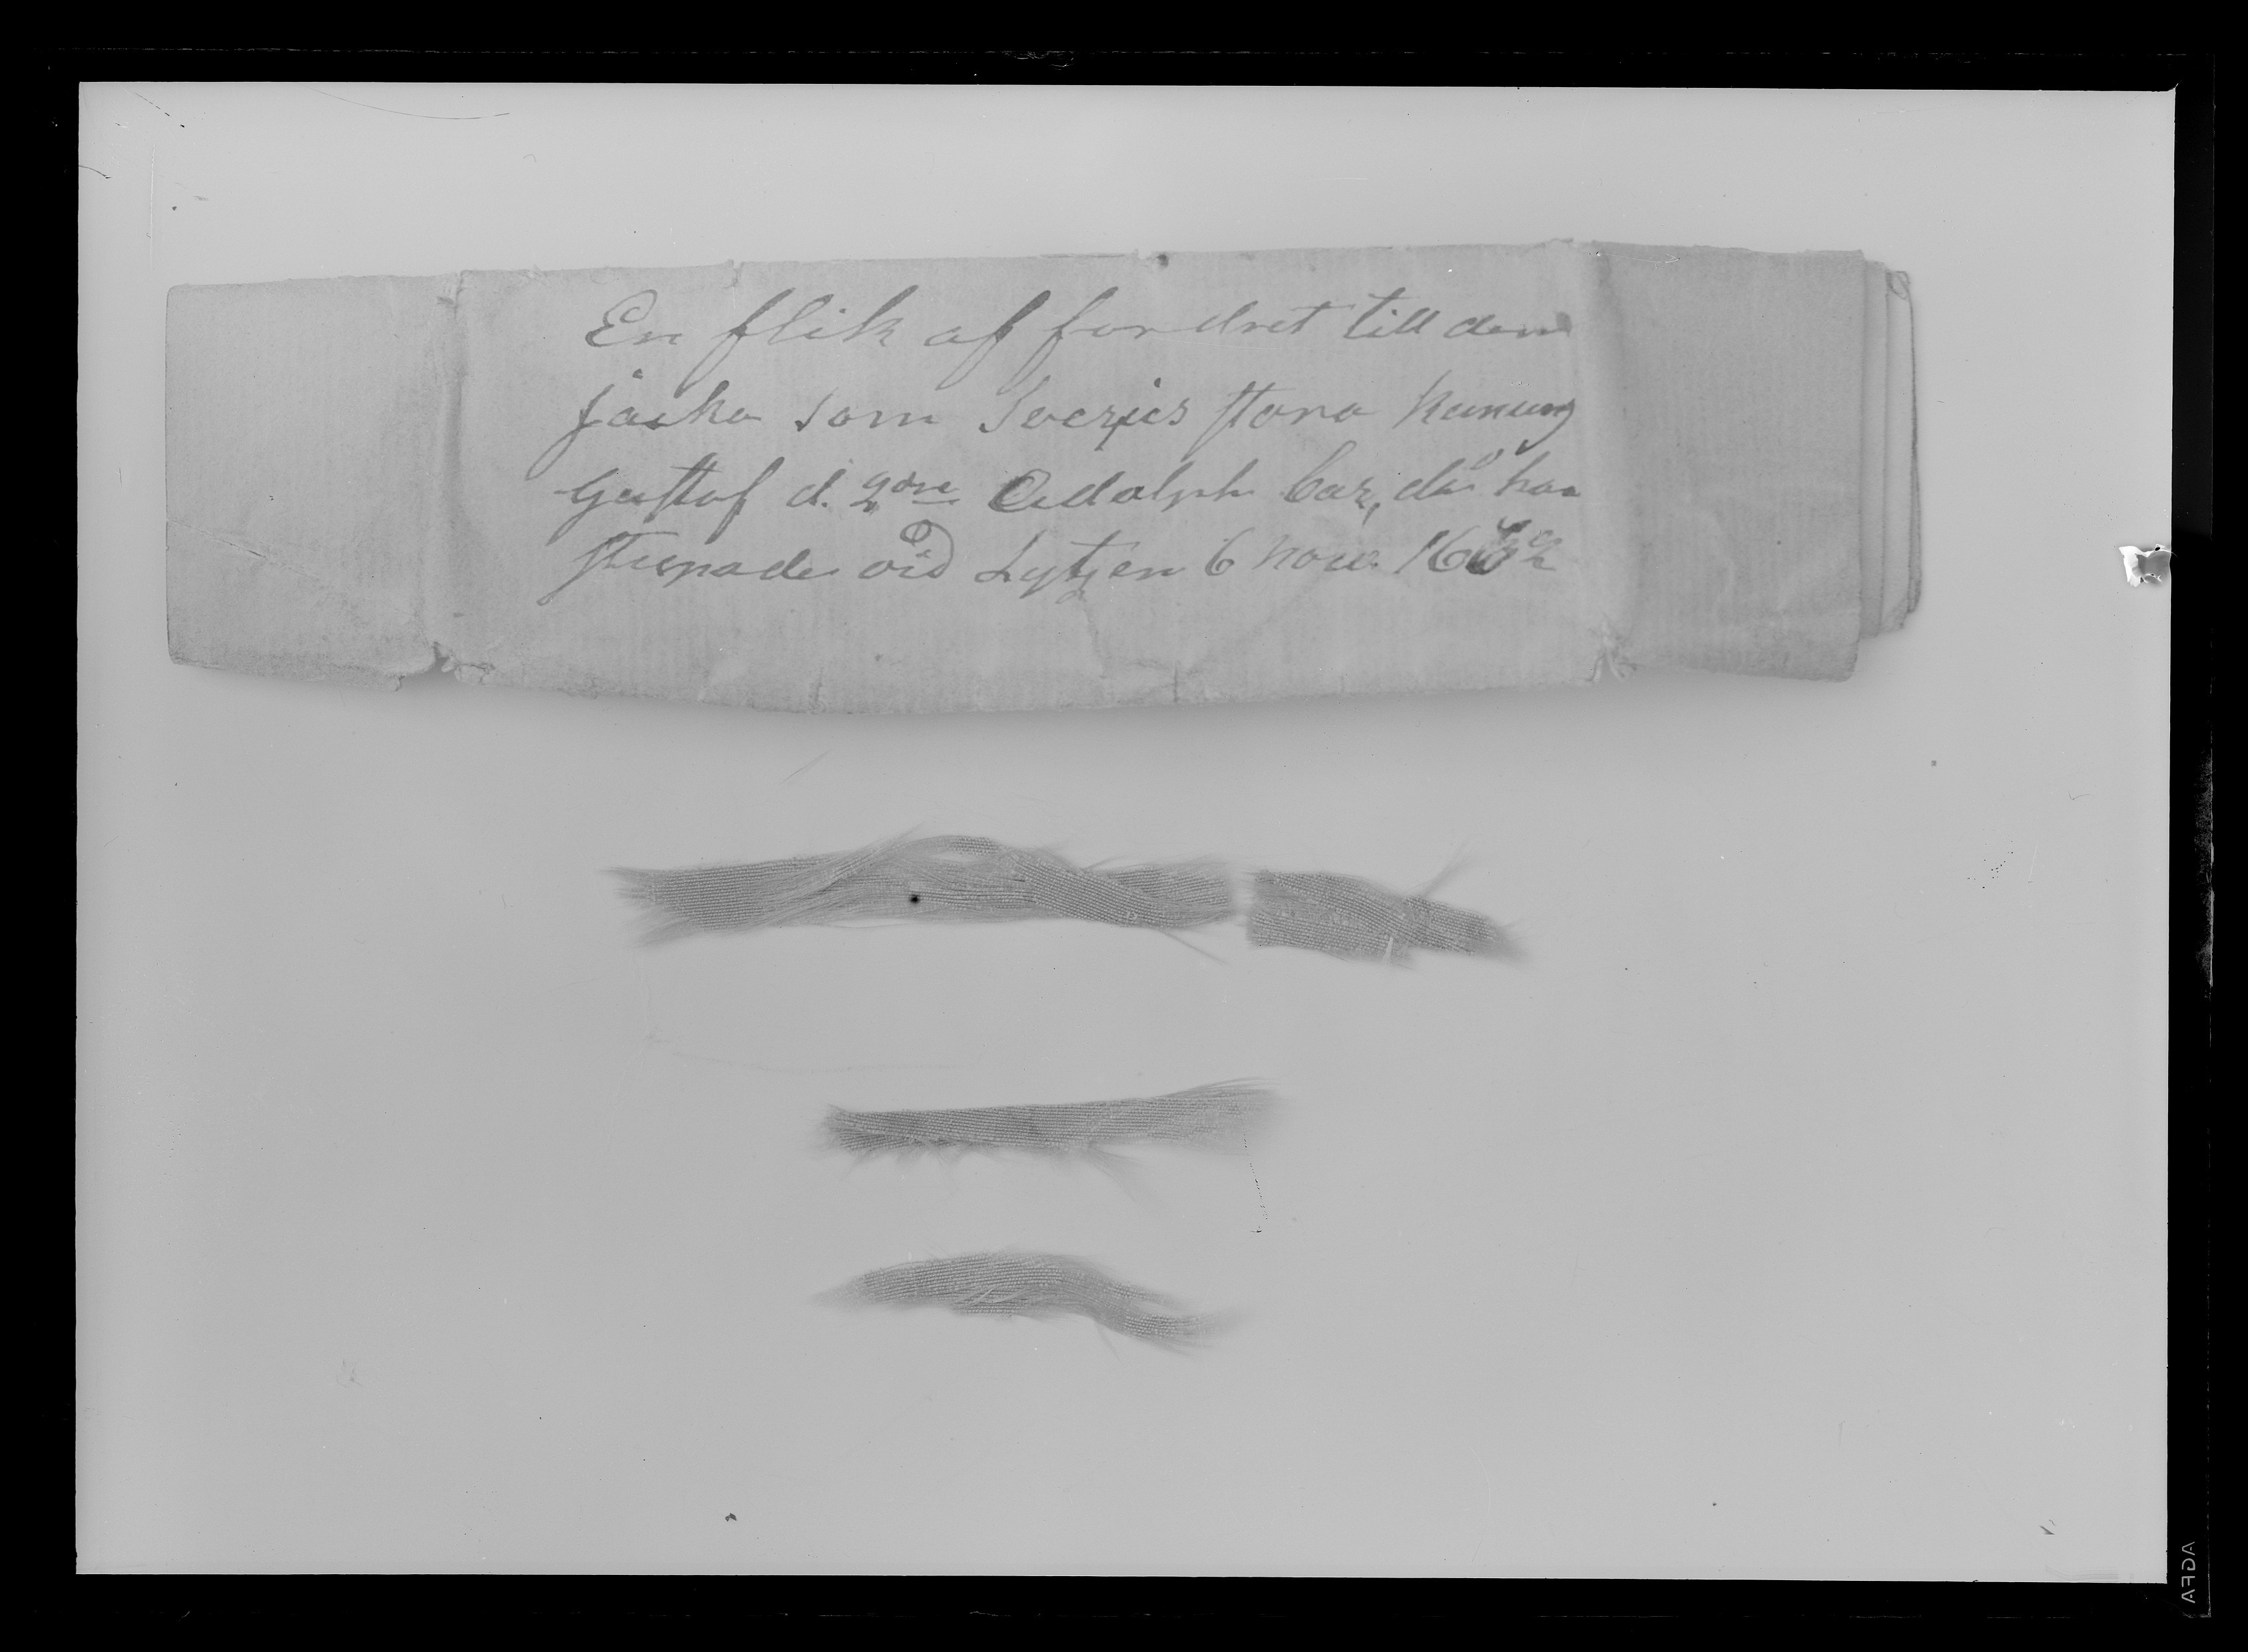 En flik af fordret till den
jacka som Sveriges stora Kunung
Gustaf d. 2dre Adolph bar, då han
stupade vid Lytzen 6 Nov. 1632
AGFA